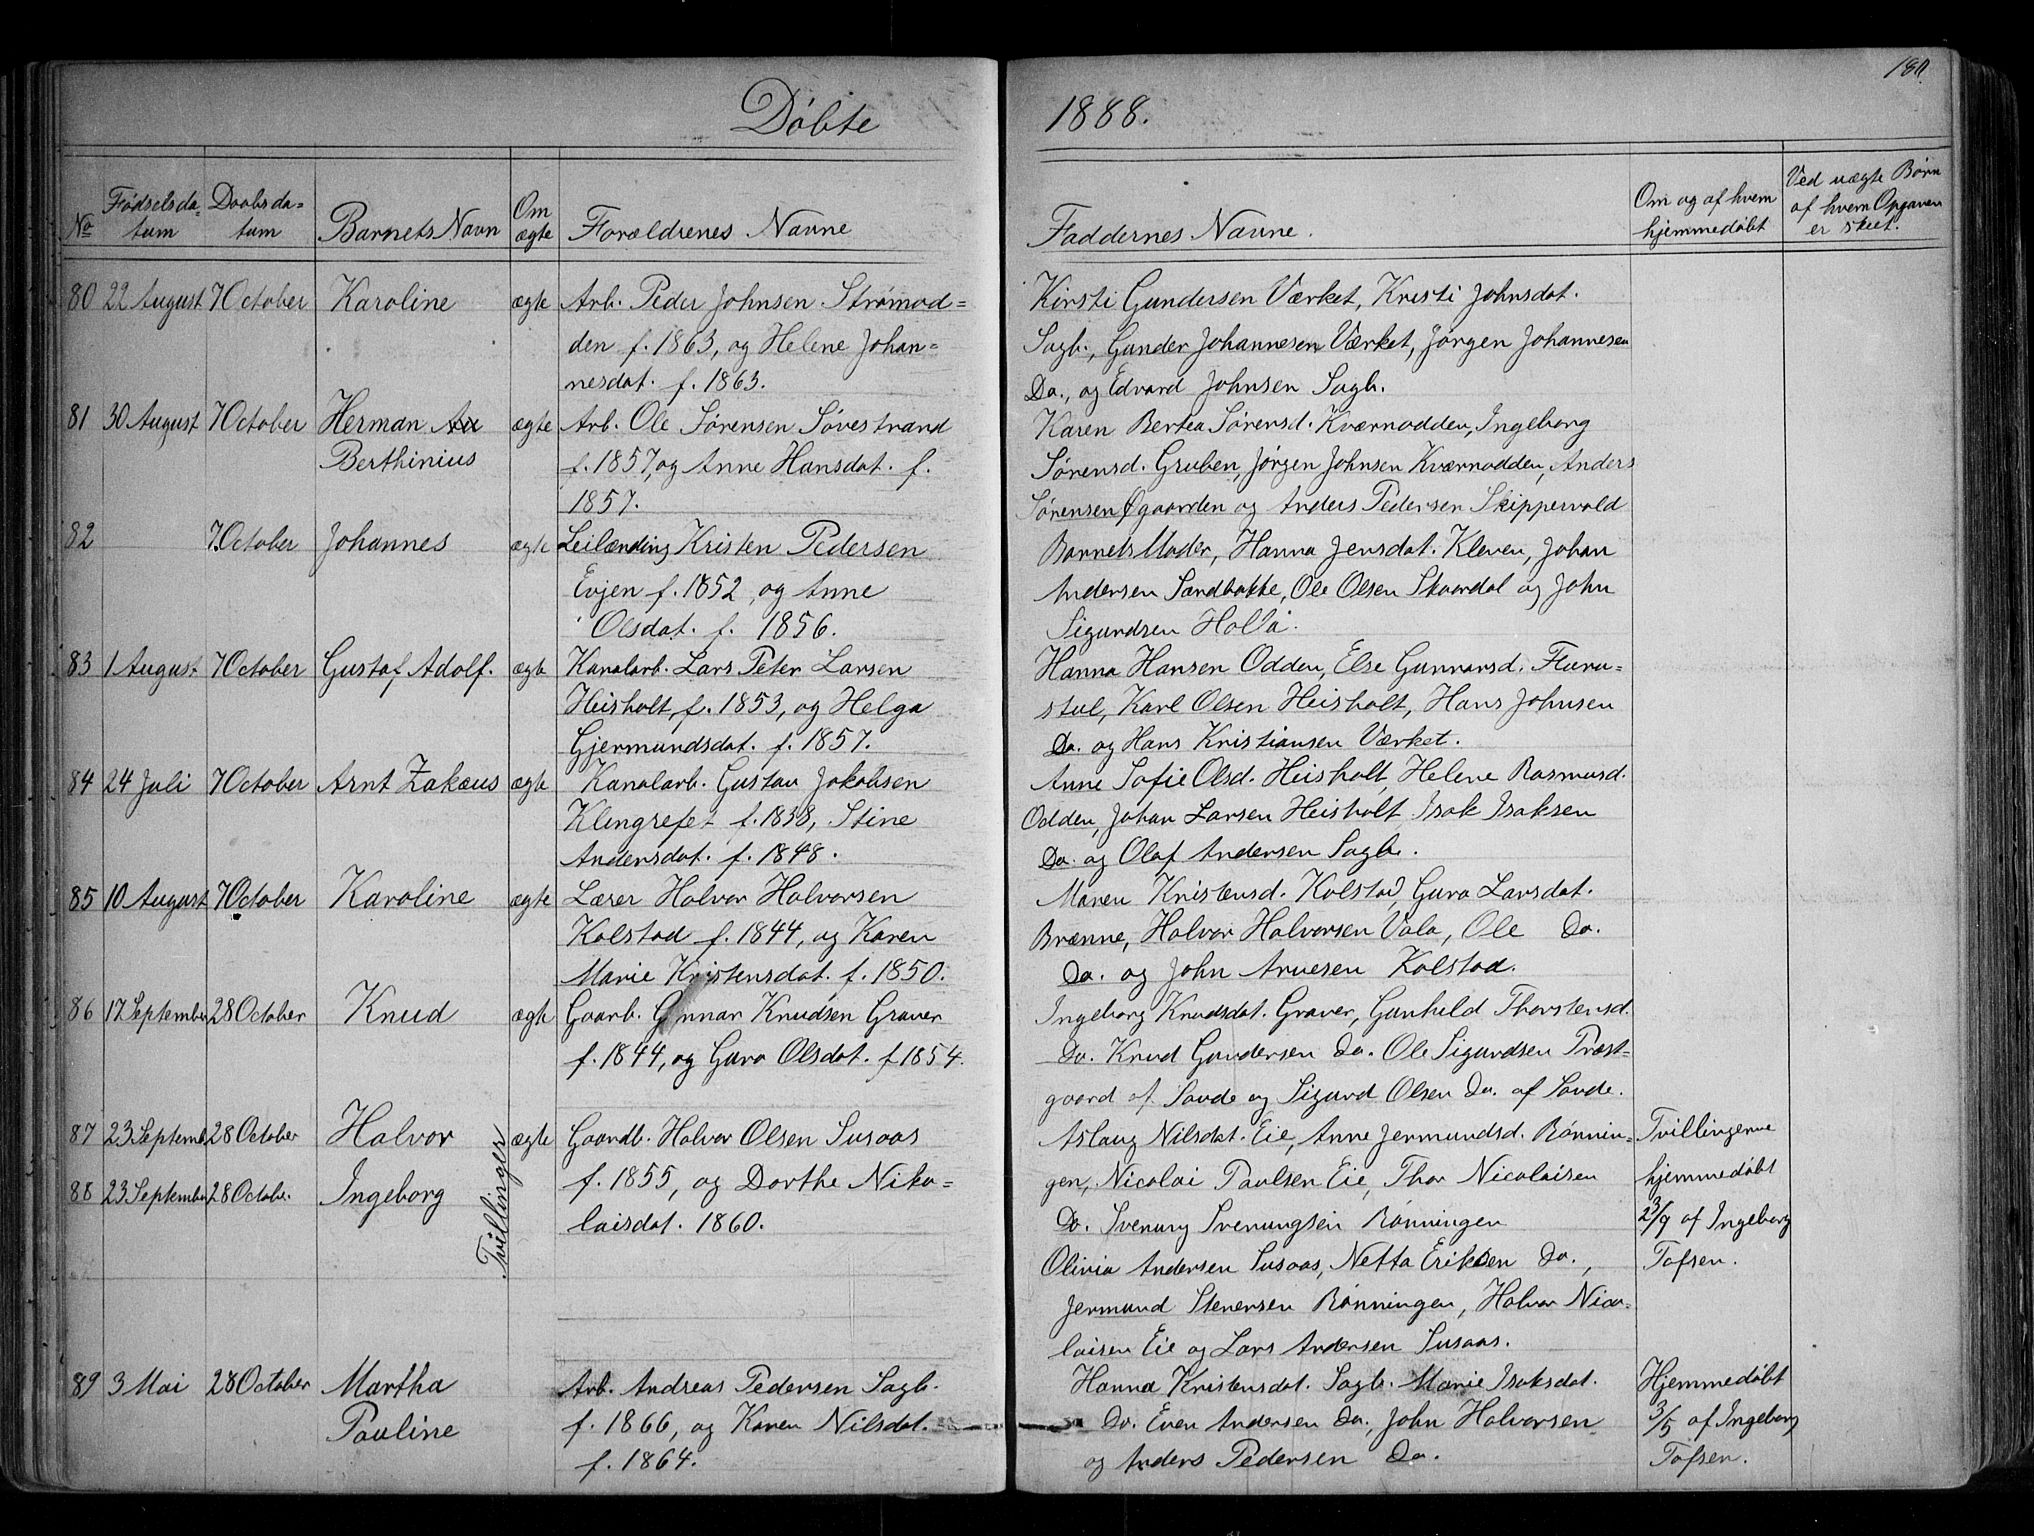 180.
Døbte 1888.
No
Fødselsda=
tum
Daabsda=
tum
Barnets Navn
Om
ægte
Forældrenes Navne
Faddernes Navne.
Om og af hvem
hjemmedøbt
Ved uægte Børn
af hvem Opgaven
er skeet.
80 22 August 7 October Karoline ægte Arb. Peder Johnsen Strømod=
den f. 1863, og Helene Johan=
nesdat. f. 1863.
Kirsti Gundersen Værket, Kristi Johnsdat.
Sagb., Gunder Johannesen Værket, Jørgen Johannesen
Do., og Edvard Johnsen Sagb.
81 30 August 7 October Herman ægte Arb. Ole Sørensen Søvestrand
Berthinius f. 1857, og Anne Hansdat. f.
1857.
Karen Bertea Sørensd. Kværnodden, Ingeborg
Sørensd. Gruben, Jørgen Johnsen Kværnodden, Anders
Sørensen Øgaarden og Anders Pedersen Skippervold
82 7 October Johannes ægte Leilænding Kristen Pedersen
Evjen f. 1852, og Anne
Olsdat. f. 1856.
Barnets Moder, Hanna Jensdat. Kleven, Johan
Andersen Sandbakke, Ole Olsen Skaardal og John
Sigurdsen Holla.
83 1 August 7 October Gustaf Adolf. ægte Kanalarb. Lars Peter Larsen
Heisholt, f. 1853, og Helga
Gjermundsdat. f. 1857.
Hanna Hansen Odden, Else Gunnarsd. Furu=
stul, Karl Olsen Heisholt, Hans Johnsen
Do. og Hans Kristiansen Værket.
84 24 Juli 7 October Arnt Zakæus ægte Kanalarb. Gustav Jakobsen
Klengrefet f. 1838, Stine
Andersdat. f. 1848.
Anne Sofie Olsd. Heisholt, Helene Rasmusd.
Odden, Johan Larsen Heisholt Isak Isaksen
Do. og Olaf Andersen Sagb.
85 10 August 7 October Karoline ægte Lærer Halvor Halvorsen
Kolstad f. 1844, og Karen
Marie Kristensdat. f. 1850.
Maren Kristensd. Kolstad, Guro Larsdat.
Brænne, Halvor Halvorsen Vala, Ole Do.
Do. og John Arvesen Kolstad.
86 17 September 28 October Knud ægte Gaarb. Gunnar Knudsen Graver
f. 1844, og Guro Olsdat. f 1854.
Ingeborg Knudsdat. Graver, Gunhild Thorstensd.
Do. Knud Gundersen Do. Ole Sigurdsen Præst=
gaard af Saude og Sigurd Olsen Do. af Saude.
87 23 Septemb. 28 October Halvor ægte Gaardb. Halvor Olsen Susaas
88 23 September 28 Octobe. Ingeborg f. 1855, og Dorthe Niko=
laisdat. 1860.
Tvillinger
Aslaug Nilsdat. Eie, Anne Jermundsd. Rønnin=
gen, Nicolai Paulsen Eie, Thor Nicolaisen
Do. Svenung Svenungsen Rønningen
Olivia Andersen Susaas, Netta Eriksen Do.,
Jermund Stenersen Rønningen, Halvor Nico=
laisen Eie og Lars Andersen Susaas.
Tvillingerne
hjemmedøbt
23/9 af Ingeborg
Tofsen.
89 3 Mai 28 October Martha
Pauline
Arb. Andreas Pedersen Sagb.
f. 1866, og Karen Nilsdat.
f. 1864.
Hanna Kristensdat. Sagb. Marie Isaksdat.
Do. Even Andersen Do., John Halvorsen
og Anders Pedersen Do.
Hjemmedøbt
3/5 af Ingeborg
Tofsen.